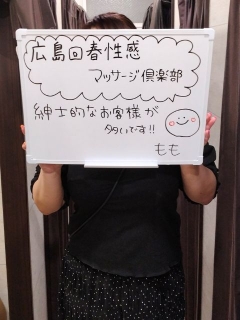 広島回春性感
マッサージ倶楽部
紳士的なお客様が
多いです!!
もも